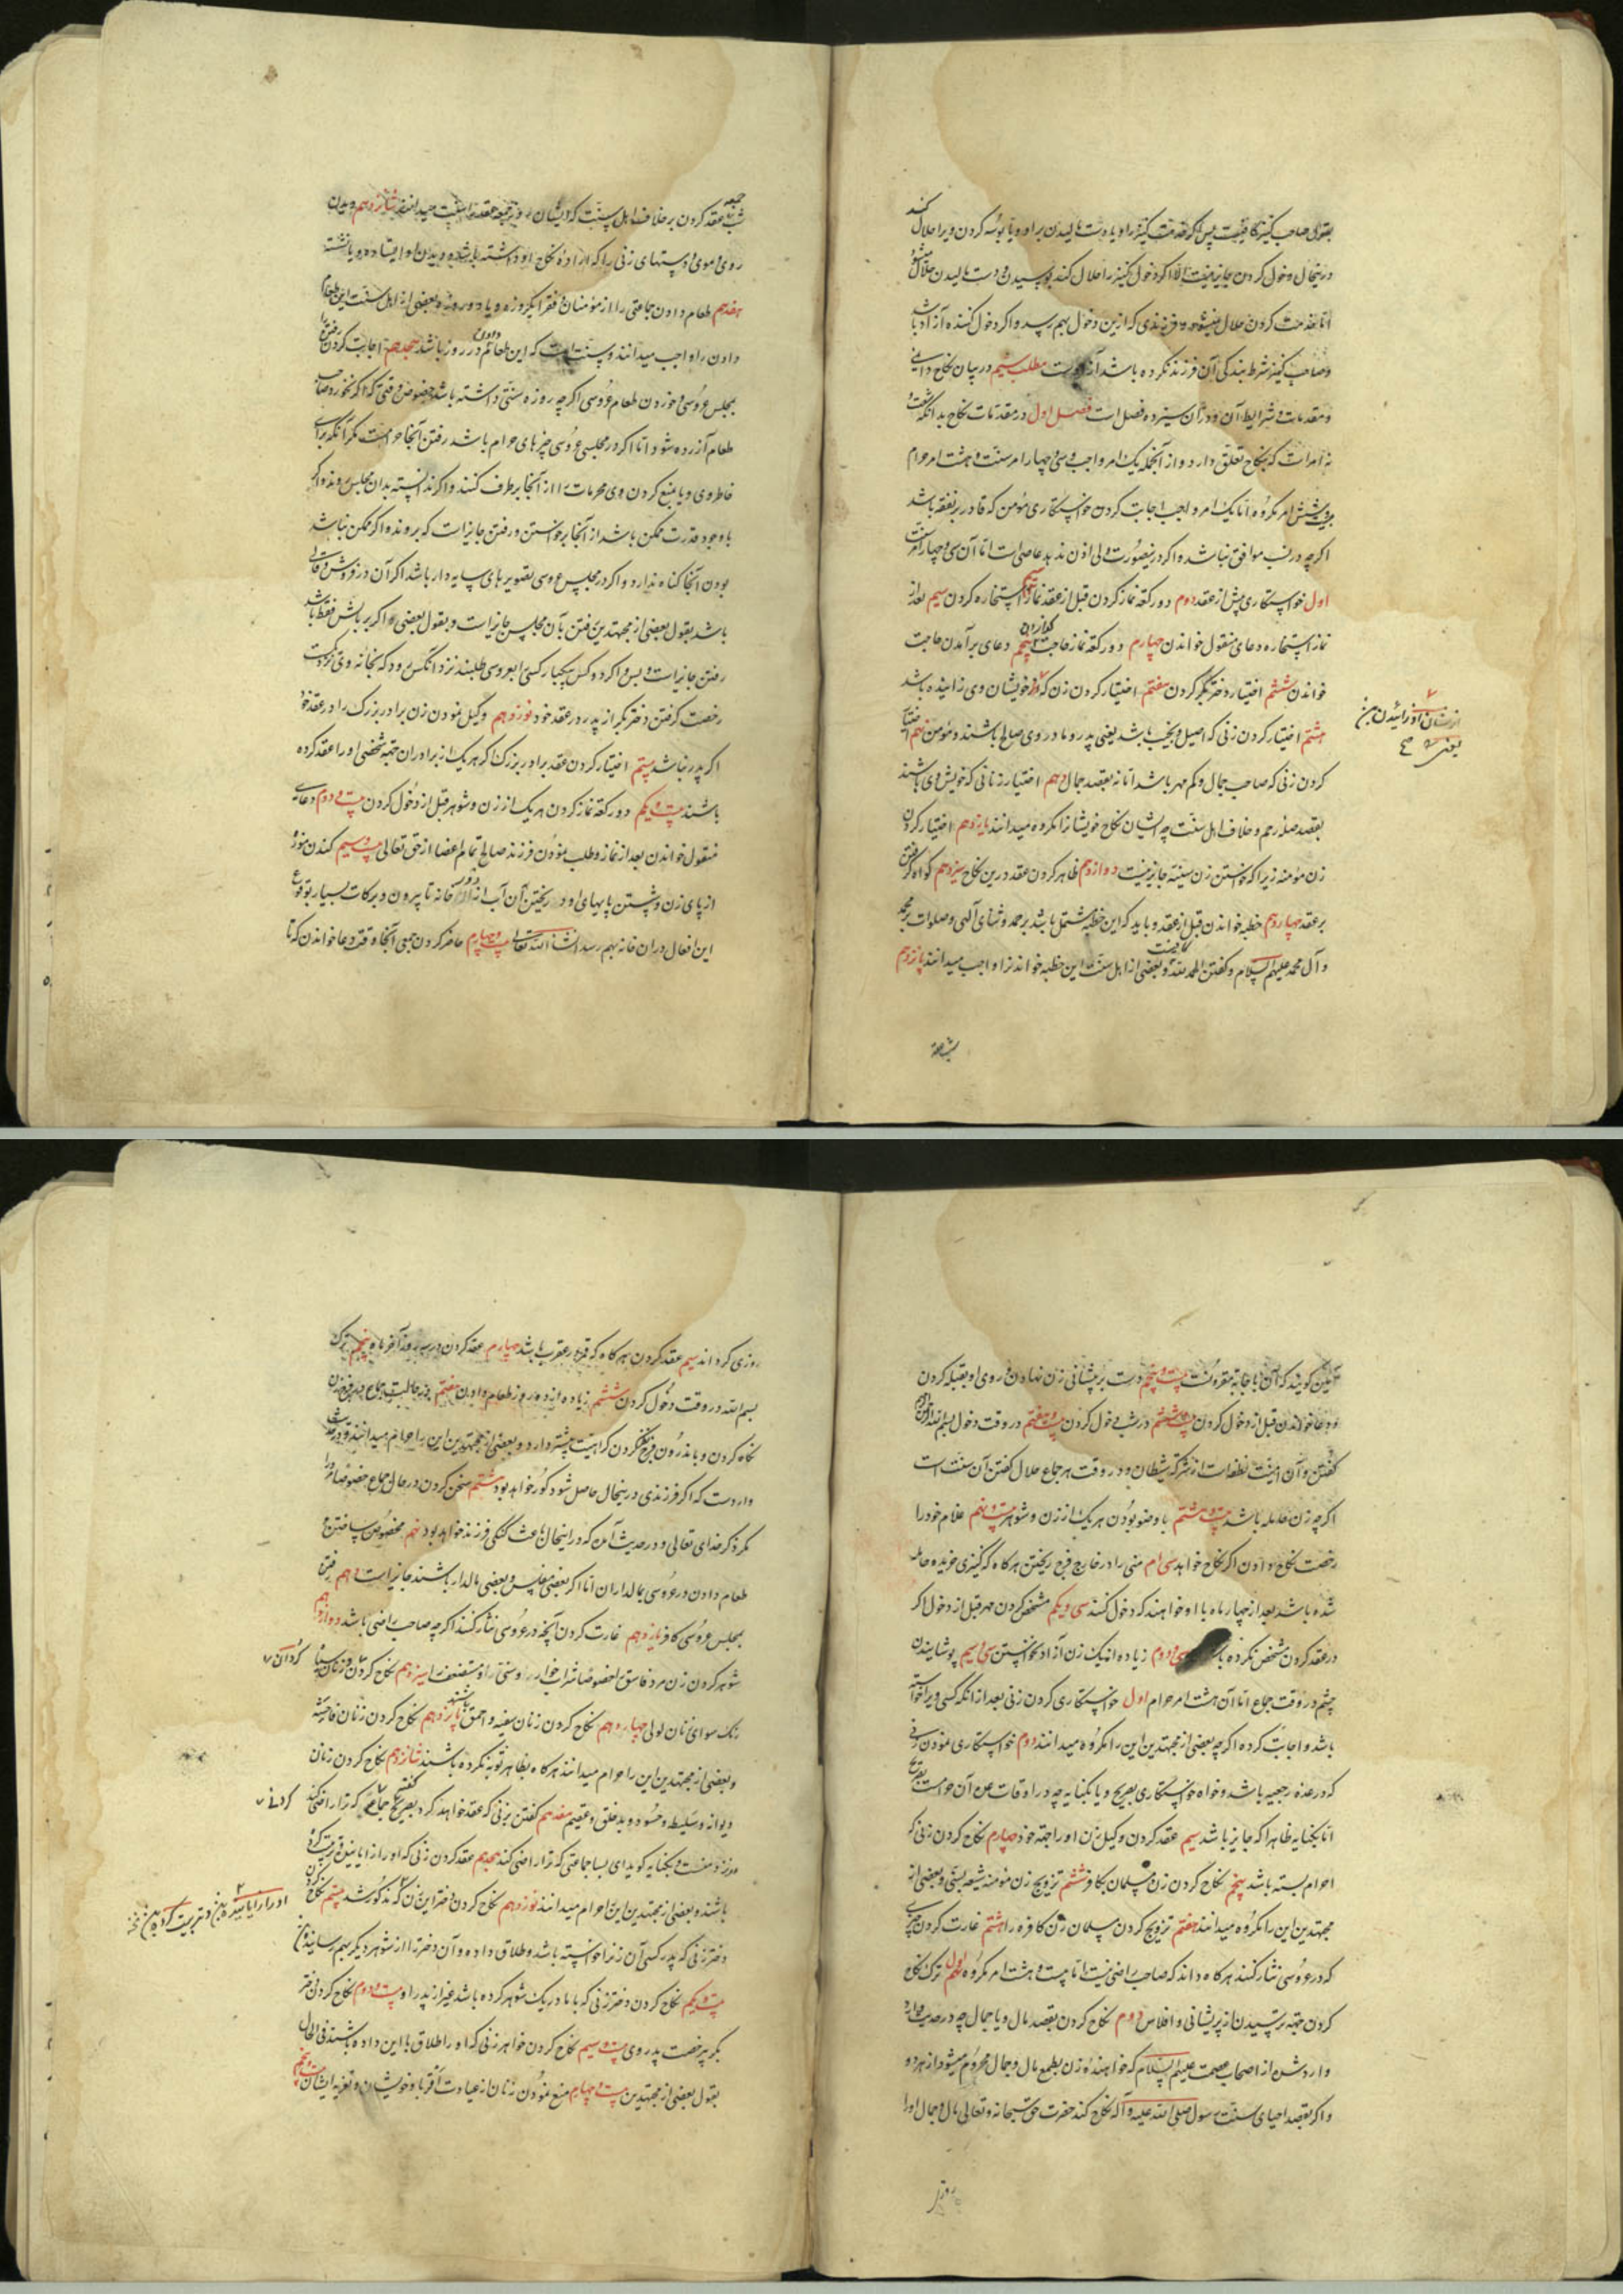 بقول صاحب کنیز کافیست پس اگر خدمت کنیز را و یا دست مالیدن بر او و یا بوسه کردن ویرا حلال کند
درینحال دخول کردن جایز نیست اما اگر دخول کنیز را حلال کند بوسیدن و دست مالیدن حلال میشود
اما خدمت کردن حلال نمیشود و فرزندی که ازین دخول بهم رسد و اگر دخول کننده آزاد باشد
و صاحب کنیز شرط بندگی آن فرزند نکرده باشد آزاد است مطلب سیم در بیان نکاح دایمی
و مقدمات و شرایط آن و در آن سیزده فصل است فصل اول در مقدمات نکاح بدانکه شصت و
نه امر است که بنکاح تعلق دارد و از آنجمله یک امر واجب و سی و چهار امر سنت و هشت امر حرام
و بیست و شش امر مکروه اما یک امر واجب اجابت کردن خواستکاری مؤمن که قادر بر نفقه باشد
اگرچه در نسب موافق نباشد و اگر درینصورت ولی اذن ندهد عاصی است اما آن سی و چهار امر سنت
اول خواستکاری پیش از عقد دوم دو رکعت نماز کردن قبل از عقد نماز استخاره کردن سیم بعد از
نماز استخاره دعای منقول خواندن چهارم دو رکعت نماز حاجت گزاردن پنجم دعای برآمدن حاجت
خواندن ششم اختیار دختر بکر کردن هفتم اختیار کردن زن که از خویشان وی زاینده باشد
هشتم اختیار کردن زنی که اصیل و نجیب باشد یعنی پدر و مادر وی صالح باشند و مؤمن نهم اختیار
کردن زنی که صاحب جمال و کم مهر باشد اما نه بقصد جمال دهم اختیار زنانی که خویش وی باشند
بقصد صله رحم و خلاف اهل سنت چه ایشان نکاح خویشانرا مکروه میدانند یازدهم اختیار کردن
زن مؤمنه زیرا که خواستن زن سنیه جایز نیست دوازدهم ظاهر کردن عقد در این نکاح سیزدهم گواه گرفتن
بر عقد چهاردهم خطبه خواندن قبل از عقد و باید که این خطبه مشتمل باشد بر حمد و ثنای آلهی و صلوات بر محمد
و آل محمد علیهم السلام و گفتن الحمد لله کافیست و بعضی از اهل سنت این خطبه خواندنرا واجب میدانند پانزدهم
شب جمعه
شب جمعه عقد کردن بر خلاف اهل سنت که ایشان روز جمعه عقد را سنت میدانند شانزدهم دیدن
روی و موی و دستهای زنی را که اراده نکاح او داشته باشد و دیدن او ایستاده و یا نشسته
هفدهم طعام دادن جماعتی را از مؤمنان فقرا یکروزه و یا دو روزه و بعضی از اهل سنت این طعام
دادن را واجب میدانند و سنت است که این طعام دادن در روز باشد هیجدهم اجابت کردن رفتن
بمجلس عروسی و خوردن طعام عروسی اگرچه روزه سنتی داشته باشد خصوصا وقتی که اگر نخورد صاحب
طعام آزرده شود اما اگر در مجلس عروسی چیزهای حرام باشد رفتن آنجا حرامست مگر آنکه برای
خاطر وی و یا منع کردن وی محرمات را از آنجا برطرف کنند و اگر ندانسته بدان مجلس روند و اگر
باوجود قدرت ممکن باشد از آنجا برخواستن و رفتن جایز است که بروند و اگر ممکن نباشد
بودن آنجا گناه ندارد و اگر در مجلس عروسی تصویرهای سایه دار باشد اگر آن در فروش و قالی
باشد بقول بعضی از مجتهدین رفتن بآن مجلس جایز است و بقول بعضی اگر بر بالش فقط باشد
رفتن جایز است و بس و اگر دو کس بیکبار کسی را بعروسی طلبند نزد آنکس رود که بخانه وی نزدیکست
رخصت گرفتن دختر بکر از پدر در عقد خود نوزدهم وکیل نمودن زن برادر بزرگ را در عقد خود
اگر پدر نباشد بیستم اختیار کردن عقد برادر بزرگ اگر هر یک از برادران جهة شخصی او را عقد کرده
باشند بیست و یکم دو رکعت نماز کردن هر یک از زن و شوهر قبل از دخول کردن بیست و دوم دعای
منقول خواندن بعد از نماز و طلب نمودن فرزند صالح تمام اعضا از حق تعالی بیست و سیم کندن موزه
از پای زن و شستن پایهای او و ریختن آن آب از در خانه تا بیرون و برکات بسیار بوقوع
این افعال در ان خانه بهم رسد انشاء الله تعالی بیست و چهارم حاضر کردن جمعی آنجا وقت دعا خواندن که تا
آمین گویند که آن باجابة مقرونست بیست و پنجم دست بر پیشانی زن نهادن و روی او بقبله کردن
و دعا خواندن قبل از دخول کردن بیست و ششم در شب دخول کردن بیست و هفتم در وقت دخول بسم الله
گفتن و آن امنیت نطفه است از شرکت شیطان و در وقت هر جماع حلال گفتن آن سنت است
اگرچه زن حامله باشد بیست و هشتم با وضو بودن هر یک از زن و شوهر بیست و نهم غلام خود را
رخصت نکاح دادن اگر نکاح خواهد سی ام منی را در خارج فرج ریختن هرگاه که کنیزی خریده حامله
شده باشد بعد از چهار ماه با او خواهند که دخول کنند سی و یکم مشخص کردن مهر قبل از دخول اگر
در عقد کردن مشخص نکرده باشند سی و دوم زیاده از یک زن آزاد نخواستن سی و سیم پوشانیدن
چشم در وقت جماع اما آن هشت امر حرام اول خواستکاری کردن زنی بعد از انکه کسی ویرا خواسته
باشد و اجابت کرده اگرچه بعضی از مجتهدین این را مکروه میدانند دوم خواستکاری نمودن زنی
که در عده رجعیه باشد و خواه خواستکاری بصریح و یا بکنایه چه در اوقات عده آن حرامست بصریح
اما بکنایه ظاهرا که جایز باشد سیم عقد کردن وکیل زن او را جهة خود چهارم نکاح کردن زنی که
احرام بسته باشد پنجم نکاح کردن زن مسلمان بکافر ششم تزویج زن مؤمنه شیعه بسنی و بعضی از
مجتهدین این را مکروه میدانند هفتم تزویج کردن مسلمان زن کافره را هشتم غارت کردن چیزی
که در عروسی نثار کنند هرگاه داند که صاحب راضی نیست اما بیست و هشت امر مکروه اول ترک نکاح
کردن جهة ترسیدن از پریشانی و افلاس دوم نکاح کردن بقصد مال و یا جمال چه در حدیث
وارد شده از اصحاب عصمت علیهم السلام که خواهنده زن بطمع مال و جمال محروم میشود از هر دو
و اگر بقصد احیای سنت رسول صلی الله علیه و آله نکاح کند حضرت حق سبحانه و تعالی مال و جمال او را
روزی
روزی گرداند سیم عقد کردن هرگاه که قمر در عقرب باشد چهارم عقد کردن در سه روز آخر ماه پنجم ترک
بسم الله در وقت دخول کردن ششم زیاده از دو روز طعام دادن هفتم در حالت جماع بفرج زن
نگاه کردن و باندرون فرج نگاه کردن کراهیت بیشتر دارد و بعضی از مجتهدین این را حرام میدانند و در حدیث
وارد است که اگر فرزندی درینحال حاصل شود کور خواهد بود هشتم سخن کردن در حال جماع خصوصا مرد را
مگر ذکر خدای تعالی و در حدیث آمده که در اینحال باعث گنگی فرزند خواهد بود نهم مخصوص ساختن
طعام دادن در عروسی بمالداران اما اگر بعضی مفلس و بعضی مالدار باشند جایز است دهم رفتن
بمجلس عروسی کافر یازدهم غارت کردن آنچه در عروسی نثار کنند اگرچه صاحب راضی باشد دوازدهم
شوهر کردن زن مرد فاسق را خصوصا شرابخوار و سنی را و مستضعف را سیزدهم نکاح کردن زنان سیاه
رنگ سوای زنان نوبی چهاردهم نکاح کردن زنان سفیه و احمق باشند پانزدهم نکاح کردن زنان فاحشه
و بعضی از مجتهدین این را حرام میدانند هرگاه بظاهر توبه نکرده باشند شانزدهم نکاح کردن زنان
دیوانه و سلیطه و حسود و بدخلق و عقیم هفدهم گفتن بزنی که عقد خواهد کرد بصریح جماعی که ترا راضی کند
نزد منست و بکنایه گوید ای بسا جماعتی که ترا راضی کند هجدهم عقد کردن زنی که او را زایانیده و تربیت کرده
باشند و بعضی از مجتهدین این را حرام میدانند نوزدهم نکاح کردن دختر این زن که مذکور شد بیستم نکاح کردن
دختر زنی که پدر کسی آن زنرا خواسته باشد و طلاق داده و آن دختر را از شوهر دیگر بهم رسانیده
بیست و یکم نکاح کردن دختر زنی که با مادر یک شوهر کرده باشد غیر از پدر او بیست و دوم نکاح کردن دختر
بکر بیرخصت پدر وی بیست و سیم نکاح کردن خواهر زنی که او را طلاق باین داده باشند فی الحال
بقول بعضی از مجتهدین بیست و چهارم منع نمودن زنان از عیادت اقربا و خویشان و تعزیه ایشان بیست و پنجم